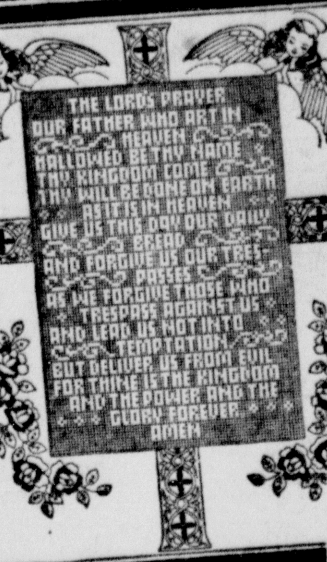 THE LORDS PRAYER
OUR FATHER WHO ART IN
HEAVEN
HALLOWED BE THY NAME
THY KINGDOM COME
THY WILL BE DONE ON EARTH
AS IT IS IN HEAVEN
GIVE US THIS DAY OUR DAILY
BREAD
AND FORGIVE US OUR TRES-
PASSES
AS WE FORGIVE THOSE WHO
TRESPASS AGAINST US
AND LEAD US NOT INTO
TEMPTATION
BUT DELIVER US FROM EVIL
FOR THINE IS THE KINGDOM
AND THE POWER AND THE
GLORY FOREVER
AMEN